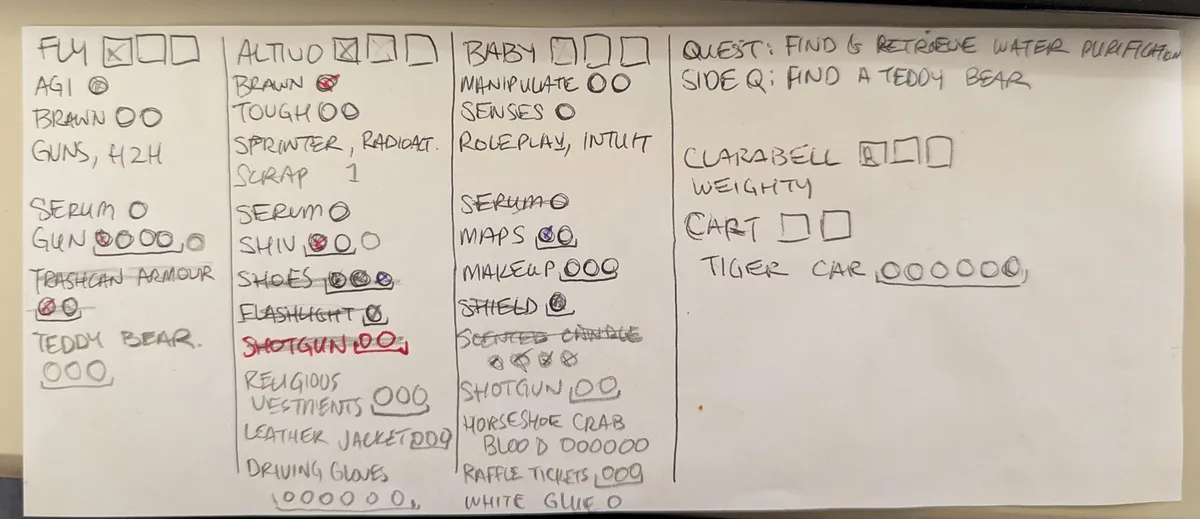 FLY
AGI
BRAWN
GUNS, H2H
SERUM
GUN
TRASHCAN ARMOUR
TEDDY BEAR.
ALTIVO
BRAWN
TOUGH
SPRINTER, RADIOACT.
SCRAP 1
SERUM
SHIV
SHOES
FLASHLIGHT
SHOTGUN
RELIGIOUS
VESTMENTS
LEATHER JACKET
DRIVING GLOVES
BABY
MANIPULATE
SENSES
ROLEPLAY, INTUIT
SERUM
MAPS
MAKEUP
SHIELD
SCENTED CANDLE
SHOTGUN
HORSESHOE CRAB
BLOOD
RAFFLE TICKETS
WHITE GLUE
QUEST: FIND & RETRIEVE WATER PURIFICATION
SIDE Q: FIND A TEDDY BEAR
CLARABELL
WEIGHTY
CART
TIGER CAR